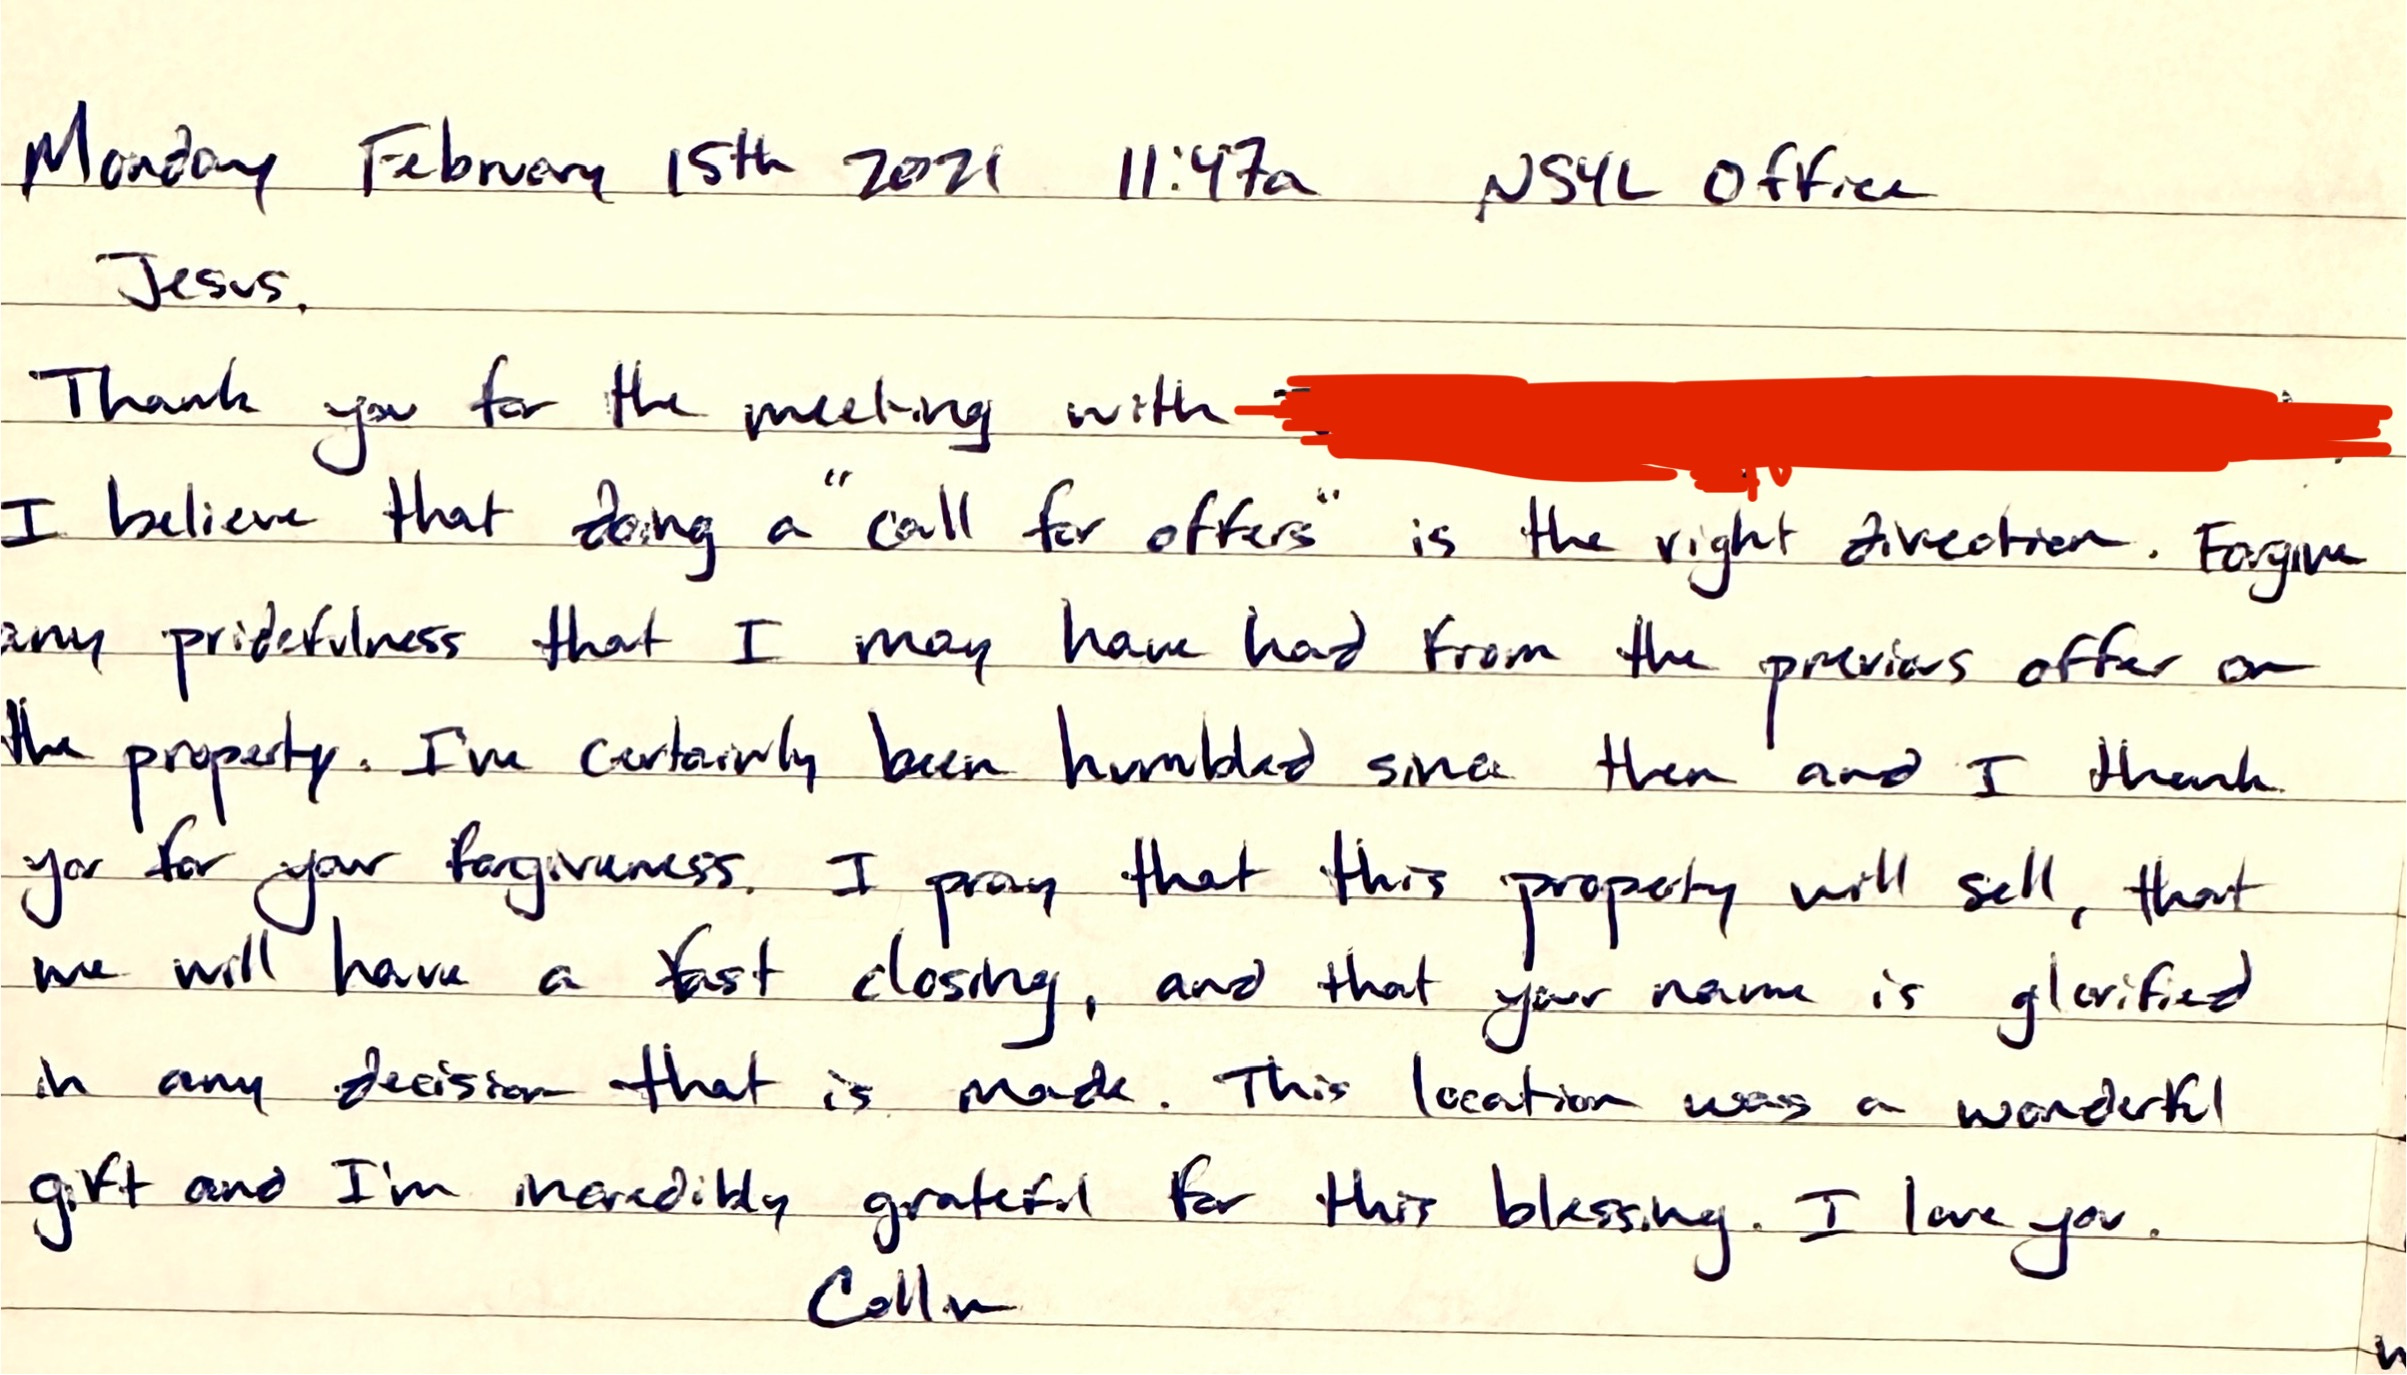 Monday February 15th 2021 11:47a NSYL Office
Jesus,
Thank you for the meeting with
I believe that doing a "call for offers" is the right direction. Forgive
any pridefulness that I may have had from the previous offer on
the property. I've certainly been humbled since then and I thank
you for your forgiveness. I pray that this property will sell, that
we will have a fast closing, and that your name is glorified
in any decision that is made. This location was a wonderful
gift and I'm incredibly grateful for this blessing. I love you.
Collin